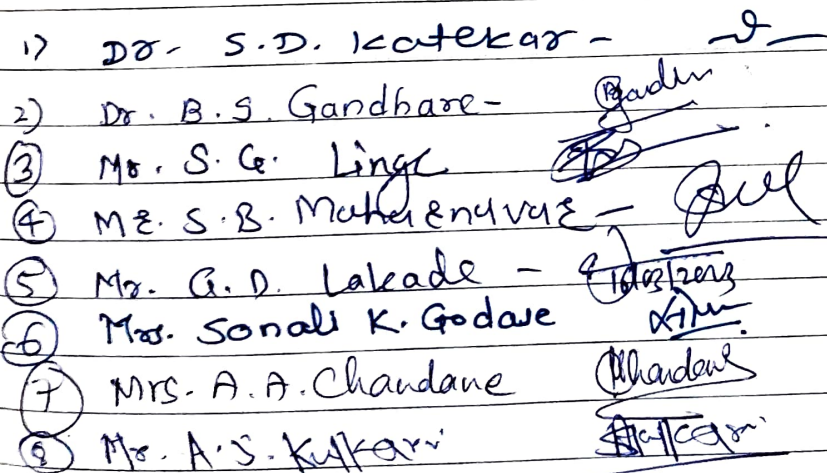 1) Dr. S.D. Katekar -
2) Dr. B.S. Gandhare -
3 Mr. S.G. Linge
4 Mr. S.B. -
5 Mr. G.D. Lakade - 16/03/2023
6 Mrs. Sonali K. Godase
7 Mrs. A.A. Chandane
8 Mr. A.S. Kulkarni